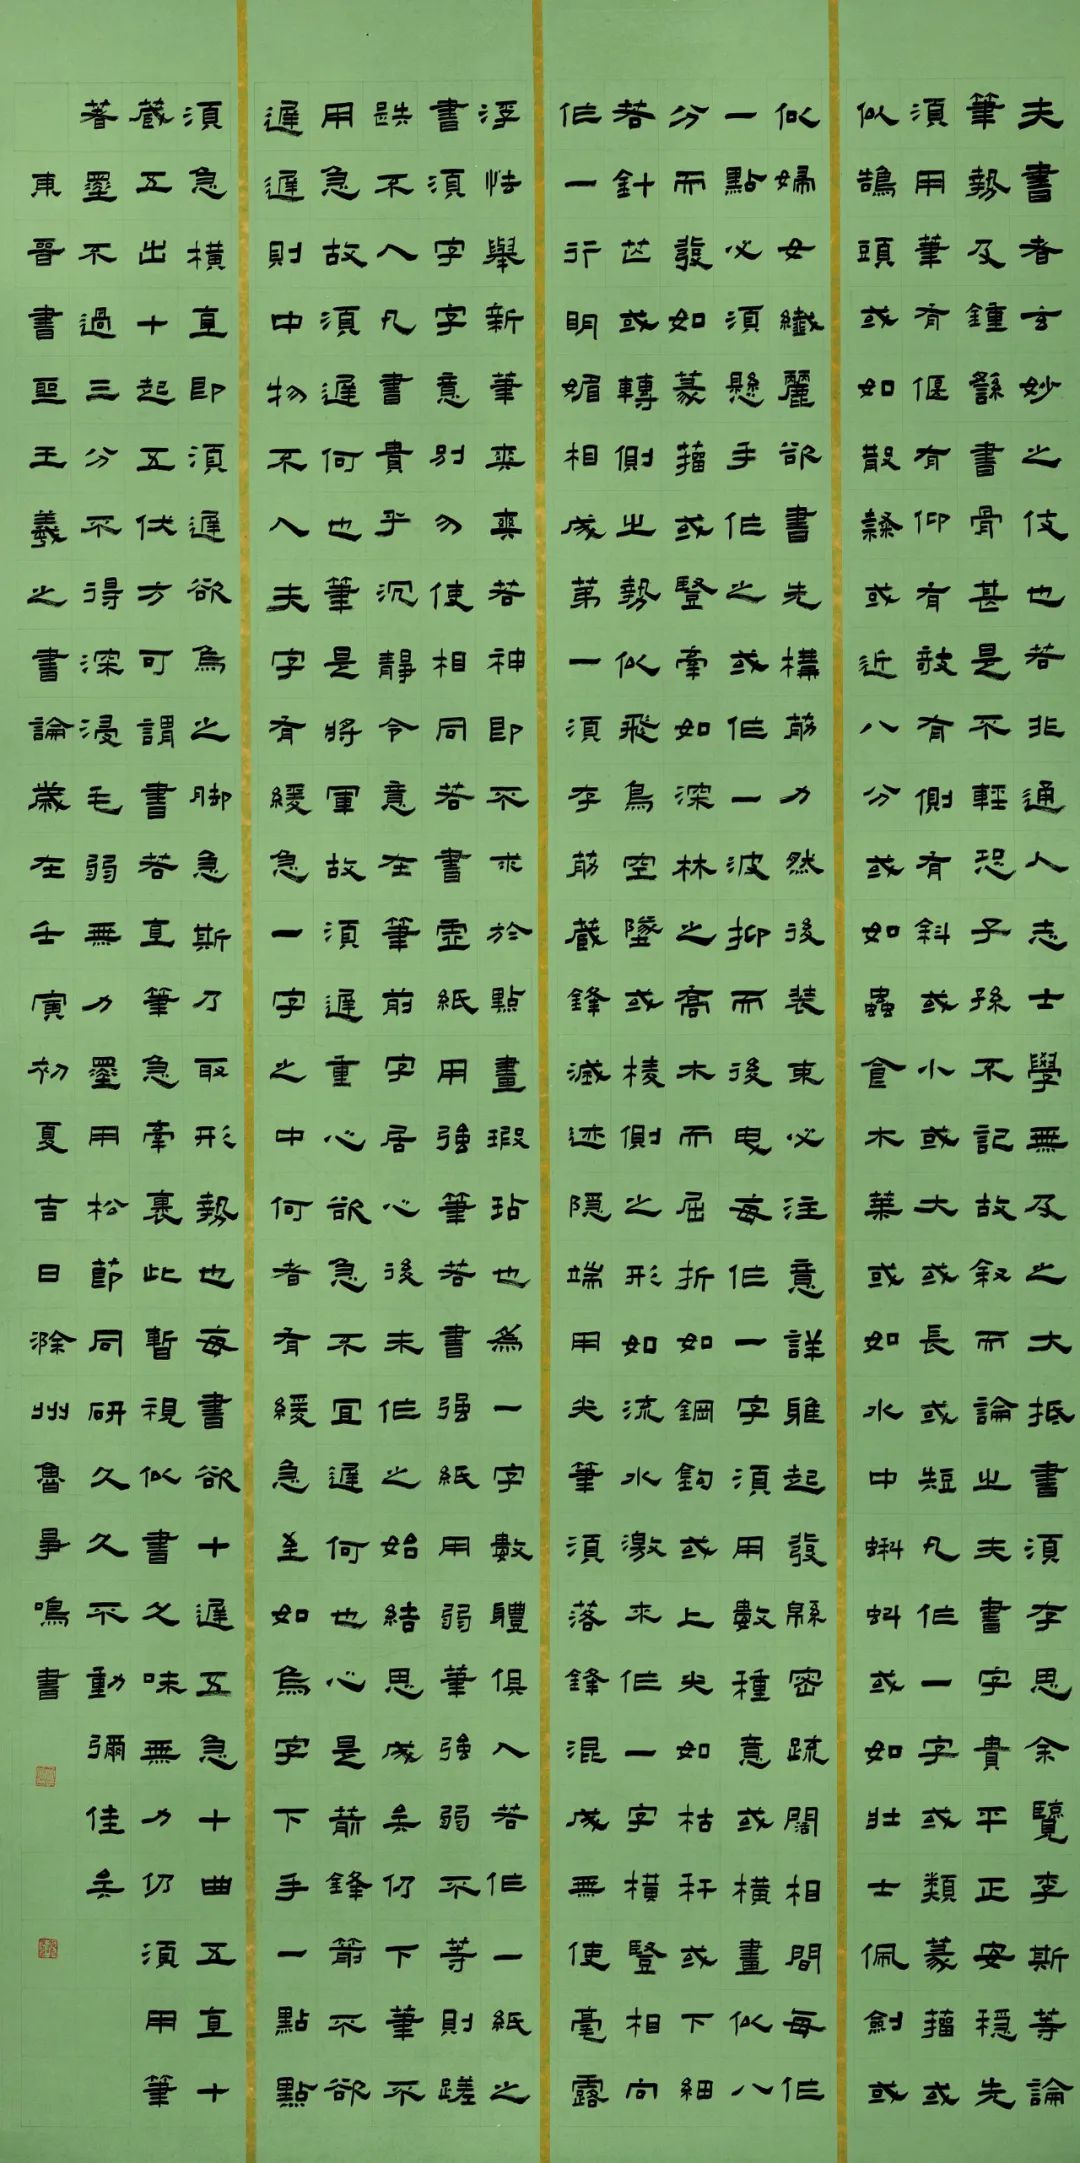 夫書者玄妙之伎也若非通人志士學無及之大抵書須存思余覽李斯等論
筆勢及鍾繇書骨甚是不輕恐子孫不記故叙而論之夫書字貴平正安穩先
須用筆有偃有仰有欹有側有斜或小或大或長或短凡作一字或類篆籀或
似鵠頭或如散隸或近八分或如蟲食木葉或如水中蝌蚪或如壯士佩劍或
似婦女纖麗欲書先構筋力然後裝束必注意詳雅起發綿密疏闊相間每作
一點必須懸手作之或作一波抑而後曳每作一字須用數種意或橫畫似八
分而發如篆籀或豎牽如深林之喬木而屈折如鋼鉤或上尖如枯稈或下細
若針芒或轉側之勢似飛鳥空墜或棱側之形如流水激來作一字橫豎相向
作一行明媚相成第一須存筋藏鋒滅迹隱端用尖筆須落鋒混成無使毫露
浮怯舉新筆爽爽若神即不求於點畫瑕玷也為一字數體俱入若作一紙之
書須字字意別勿使相同若書虛紙用強筆若書强紙用弱筆強弱不等則蹉
跌不入凡書貴乎沉靜令意在筆前字居心後未作之始結思成矣仍下筆不
用急故須遲何也筆是將軍故須遲重心欲急不宜遲何也心是箭鋒箭不欲
遲遲則中物不入夫字有緩急一字之中何者有緩急至如烏字下手一點點
須急橫直即須遲欲烏之脚急斯乃取形勢也每書欲十遲五急十曲五直十
藏五出十起五伏方可謂書若直筆急牽裏此暫視似書久味無力仍須用筆
著墨不過三分不得深浸毛弱無力墨用松節同研久久不動彌佳矣
東晉書聖王羲之書論歲在壬寅初夏吉日滁州魯爭鳴書